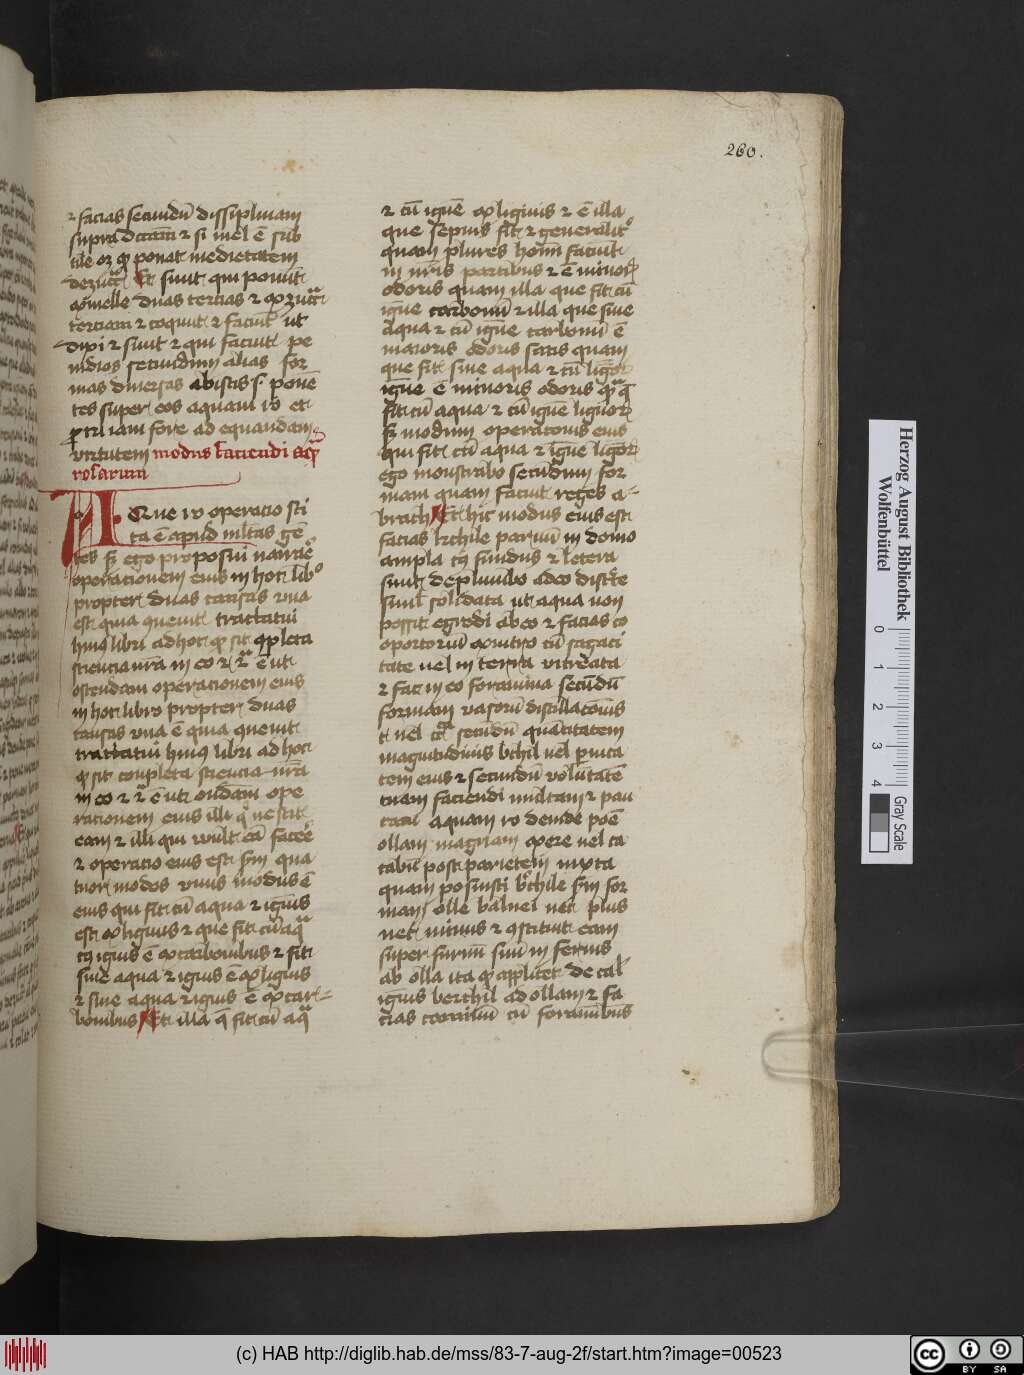 260.
⁊ facias secundū dissiplinam
supra dictam ⁊ si mel ē sub
tile opꝫ ꝙ ponat medietatem
de zucr̄. Et sunt qui ponūt
ꝯ melle duas tercias ⁊ ex zucr̄
terciam ⁊ coquūt ⁊ faciūt ut
dixi ⁊ sunt ⁊ qui faciūt pe
nidios secundum alias for
mas diuersas ab istis s. ponē
tes super eos aquam ro et
ꝑtriuiam fore ad equandam
virtutem modus faciendi aqͣ
rosarum
Aque ro operatio sci
ta ē apud ml̄tas gē
tes sꝫ ego proposui narrāe
operacionem eius in hoc libͦ
propter duas causas vna
est quia queuit tractatui
huiꝰ libri ad hoc ꝙ sit ꝯpleta
sciencia nr̄a in eo ⁊ 2ͣ ē ut
ostendam operacionem eius
in hoc libro propter duas
causas vna ē quia queuit
tractatui huiꝰ libri ad hoc
ꝙ sit completa sciencia nr̄a
in eo ⁊ 2ͣ ē ut ondam ope
racionem eius illi qͥ nescit
eam ⁊ illi qui wult eā facē
⁊ operatio eius est sm̄ qua
tuor modos vnus modus ē
eius qui fit cū aqua ⁊ ignis
est ex lignis ⁊ que fit cū aqͣ
cꝫ ignis ē ex carbonibus ⁊ fit
sine aqua ⁊ ignis ē ex lignis
⁊ sine aqua ⁊ ignis ē ex car
bonibus Et illa q̄ fit cū aqͣ
⁊ cū igne ex lignis ⁊ ē illa
que sepius fit ⁊ generalitͦ
quam plures hom̄ faciūt
in nr̄is partibus ⁊ ē minoꝝ
odoris quam illa que fit cū
igne carbonū ⁊ illa que sine
aqua ⁊ cū igne carbonū ē
maioris odoris satis quam
que fit sine aqua ⁊ cū lignoꝝ
igne ē minoris odoris qͣ q̄
fit cū aqua ⁊ cū igne lignoꝝ
sꝫ modum operacionis eius
qui fit cū aqua ⁊ igne lignoꝝ
ego monstrabo secundum for
mam quam faciūt reges a
brach Et hic modus eius est
facias bchile paruū in domo
ampla cꝫ fundus ⁊ letera
sint de plumbo adeo discrete
simul solidata ut aqua non
possit egredi ab eo ⁊ facias co
oportoriū ex vitro cū sagaci
tate uel in terra vitreata
⁊ fac in eo foramina secūdū
formam vasorū distillacōnis
secūdū quātitatem
magnitudinis bchil uel ꝑuita
tem eius ⁊ secundū volūtatē
tuam faciendi multam ⁊ pau
cam aquam ro deinde poē
ollam magnam ex ere uel ca
cabū post parietem iuxta
quam posuisti bchile sm̄ for
mam olle balnei nec plus
nec minus ⁊ ꝯstituit eam
super furnū suū in fernus
ab olla ita ꝙ applicet de cal̄
ignis berchil ad ollam ⁊ fa
cias caminū cū foraminibus
Herzog August Bibliothek
Wolfenbüttel
0 1 2 3 4
Gray Scale
(c) HAB http://diglib.hab.de/mss/83-7-aug-2f/start.htm?image=00523
cc BY SA